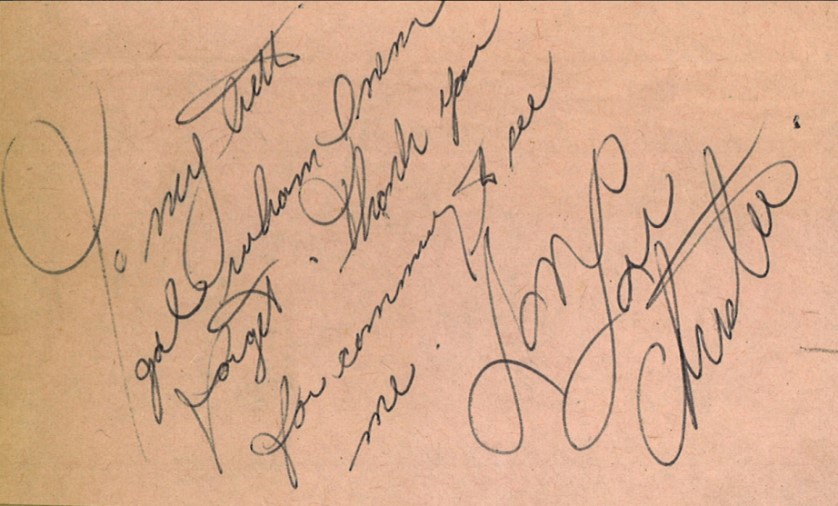 To my
gal whom I never
forget. Thank you
for coming to see
me.
Lou
Christie